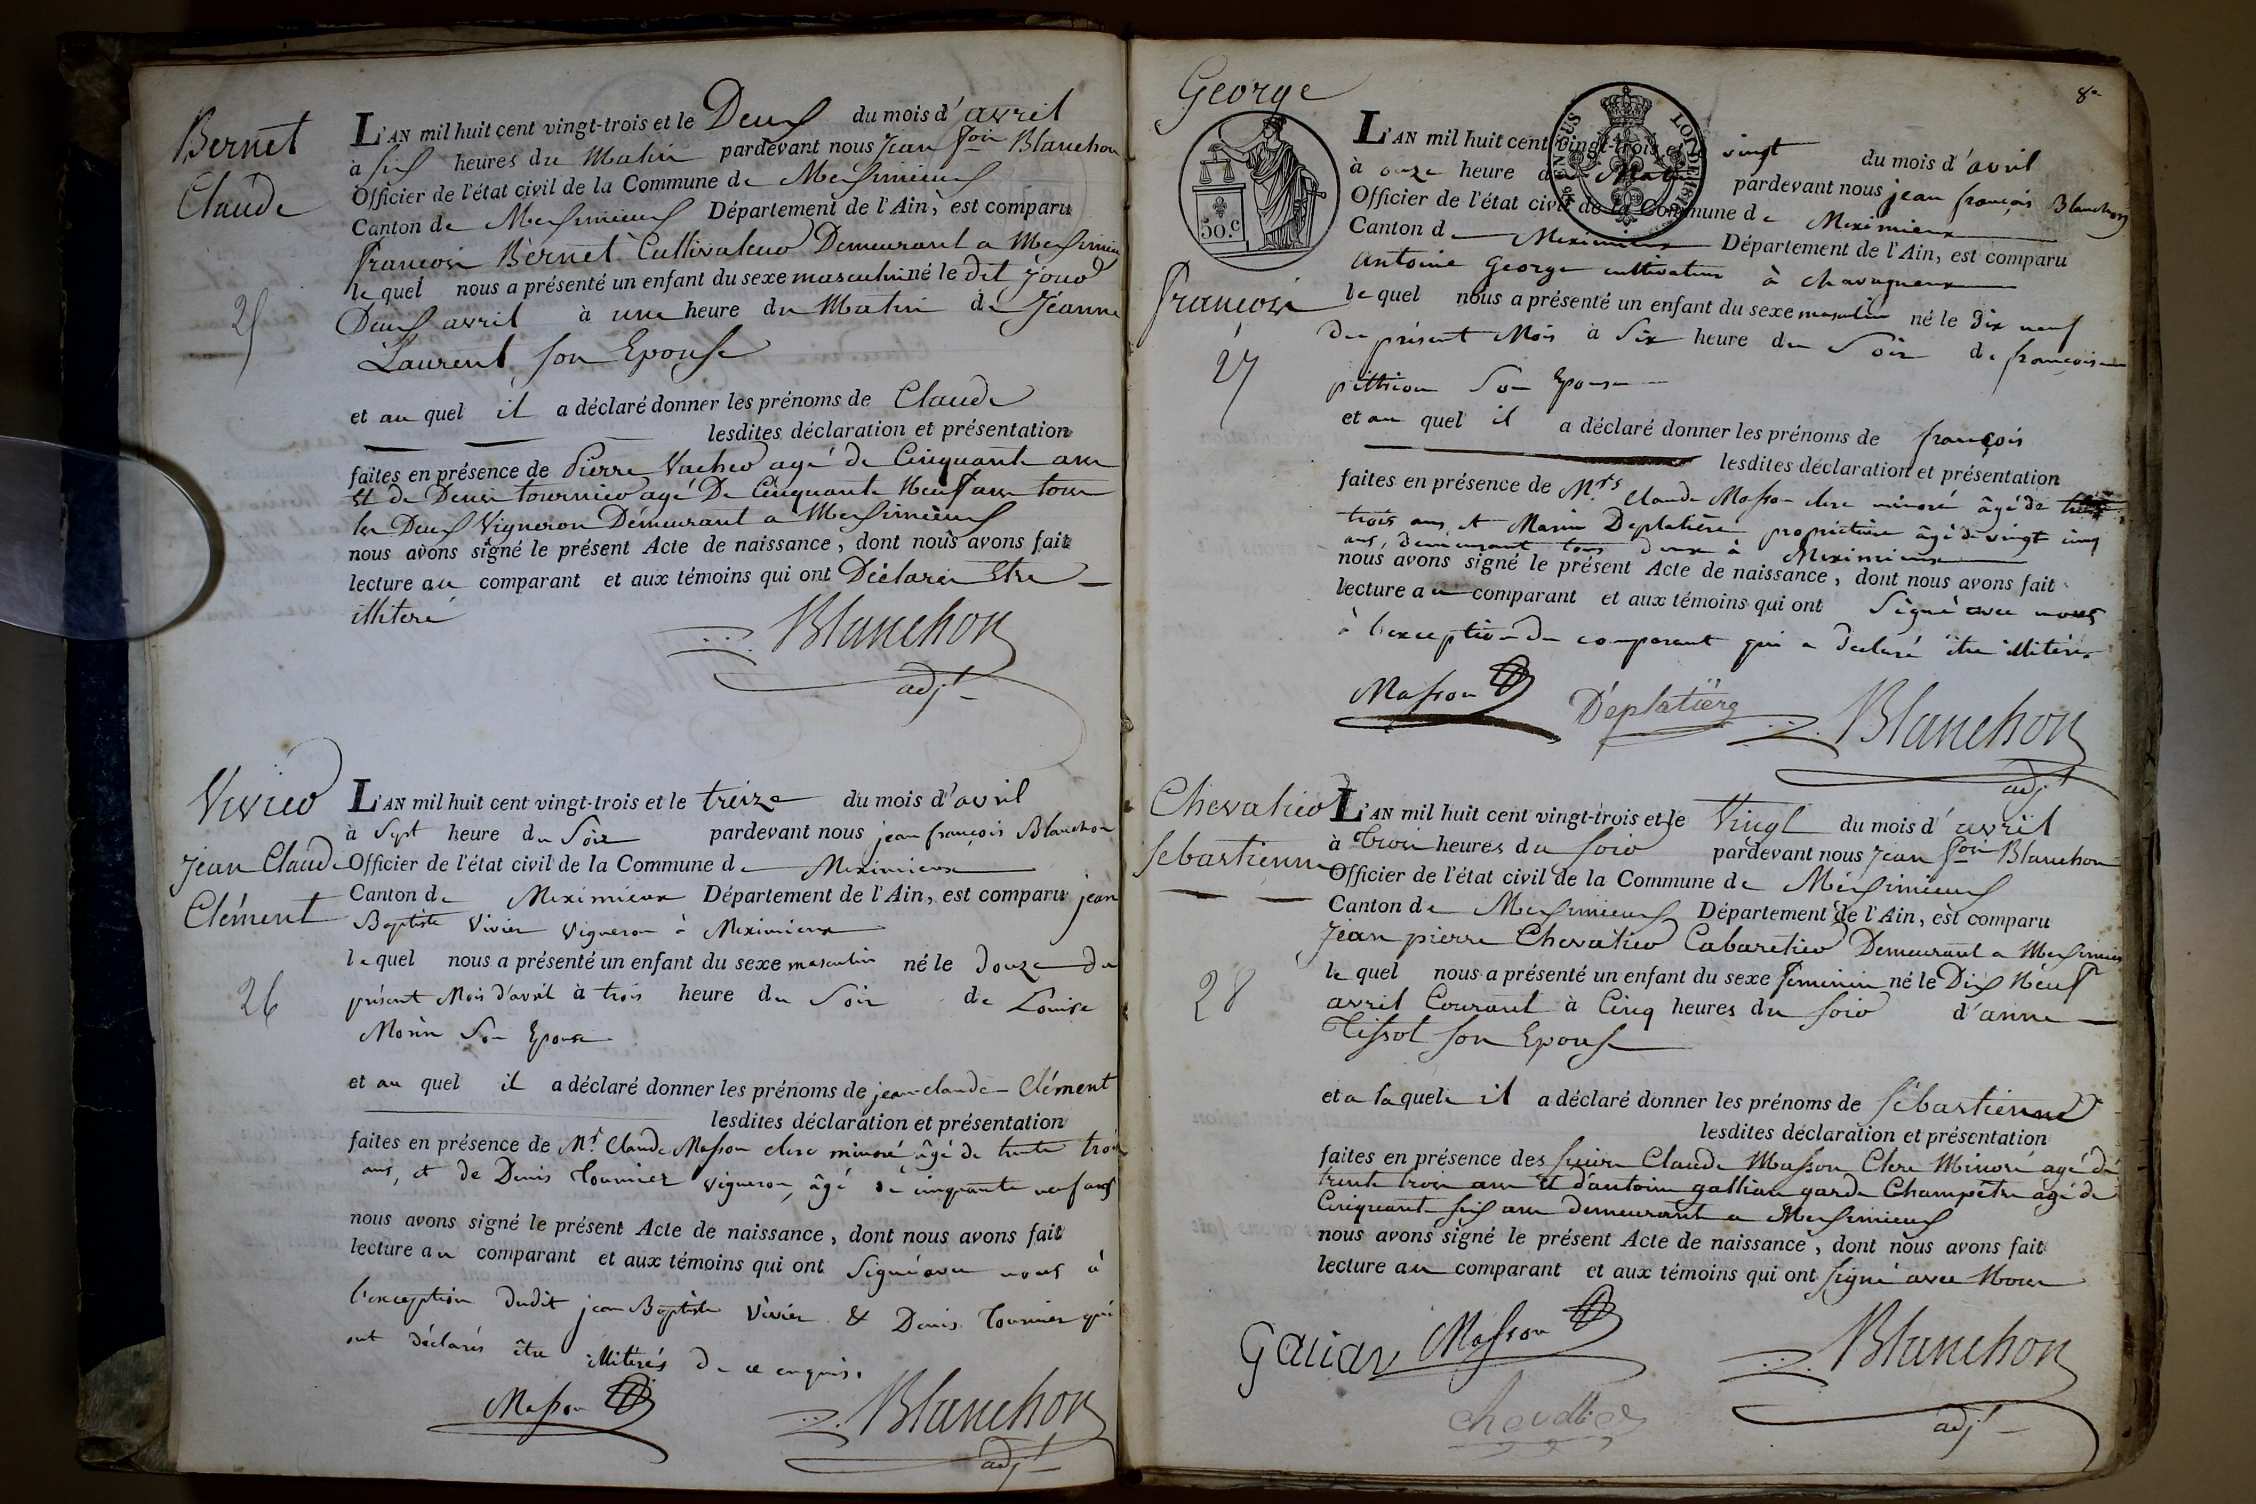 Bernet
Claude
25
L'AN mil huit cent vingt-trois et le Deux du mois d'avril
à six heures du Matin pardevant nous Jean fois Blanchon
Officier de l'état civil de la Commune de Meximieux
Canton de Meximieux Département de l'Ain, est comparu
françois Bernet Cultivateur Demeurant a Meximieux
lequel nous a présenté un enfant du sexe masculin né le dit jour
Deux avril à une heure du Matin de Jeanne
Laurent son Epouse
et au quel il a déclaré donner les prénoms de Claude
lesdites déclaration et présentation
faites en présence de Pierre Vacher agé de Cinquante ans
et de Denis tournier agé De Cinquante Neuf ans tous
les Deux Vigneron Demeurant a Meximieux
nous avons signé le présent Acte de naissance, dont nous avons fait
lecture au comparant et aux témoins qui ont Déclarés Etre
illiteré
Blanchon
adjt
Vivier
jean Claude
Clément
26
L'AN mil huit cent vingt-trois et le treize du mois d'avril
à Sept heure du Soir pardevant nous jean françois Blanchon
Officier de l'état civil de la Commune de Meximieux
Canton de Meximieux Département de l'Ain, est comparu jean
Baptiste Vivier Vigneron à Meximieux
lequel nous a présenté un enfant du sexe masculin né le douze du
présent Mois d'avril à trois heure du Soir de Louise
Morin Son Epouse
et au quel il a déclaré donner les prénoms de jean-claude-Clément
lesdites déclaration et présentation
faites en présence de Mr Claude Masson clerc minoré âgé de trente trois
ans, et de Denis Tournier vigneron, âgé de cinquante neuf ans
nous avons signé le présent Acte de naissance, dont nous avons fait
lecture au comparant et aux témoins qui ont Signé avec nous à
l'exception dudit jean Baptiste Vivier & Denis Tournier qui
ont déclarés être illitérés de ce enquis.
Masson
Blanchon
adjt
8e
George
50.c
françois
27
L'AN mil huit cent vingt-trois et le vingt du mois d'avril
à onze heure du Matin pardevant nous jean françois Blanchon
Officier de l'état civil de la Commune de Meximieux
Canton de Meximieux Département de l'Ain, est comparu
Antoine George cultivateur à chavagneux
lequel nous a présenté un enfant du sexe masculin né le dix neuf
du présent Mois à Six heure du Soir de françoise
pithiou Son Epouse
et au quel il a déclaré donner les prénoms de françois
lesdites déclaration et présentation
faites en présence de Mrs Claude Masson clerc minoré âgé de trente
trois ans et Marin Déplatière propriétaire âgé de vingt cinq
ans, demeurant tous deux à Meximieux
nous avons signé le présent Acte de naissance, dont nous avons fait
lecture au comparant et aux témoins qui ont Signé avec nous
à l'exception du comparant qui a déclaré être illitéré.
Masson Déplatière Blanchon
adjt
Chevalier
Sebastienne
28
L'AN mil huit cent vingt-trois et le Vingt du mois d'avril
à trois heures du soir pardevant nous Jean fois Blanchon
Officier de l'état civil de la Commune de Meximieux
Canton de Meximieux Département de l'Ain, est comparu
Jean pierre Chevalier Cabaretier Demeurant a Meximieux
lequel nous a présenté un enfant du sexe feminin né le Dix Neuf
avril Courant à Cinq heures du soir d'anne
Tissot son Epouse
et a laquele il a déclaré donner les prénoms de Sébastienne
lesdites déclaration et présentation
faites en présence des sieurs Claude Masson Clerc Minoré agé de
trente trois ans et d'antoine gallian garde Champêtre agé de
Cinquante six ans demeurant a Meximieux
nous avons signé le présent Acte de naissance, dont nous avons fait
lecture au comparant et aux témoins qui ont signé avec Nous
Galian Masson Blanchon
adjt
chevallier